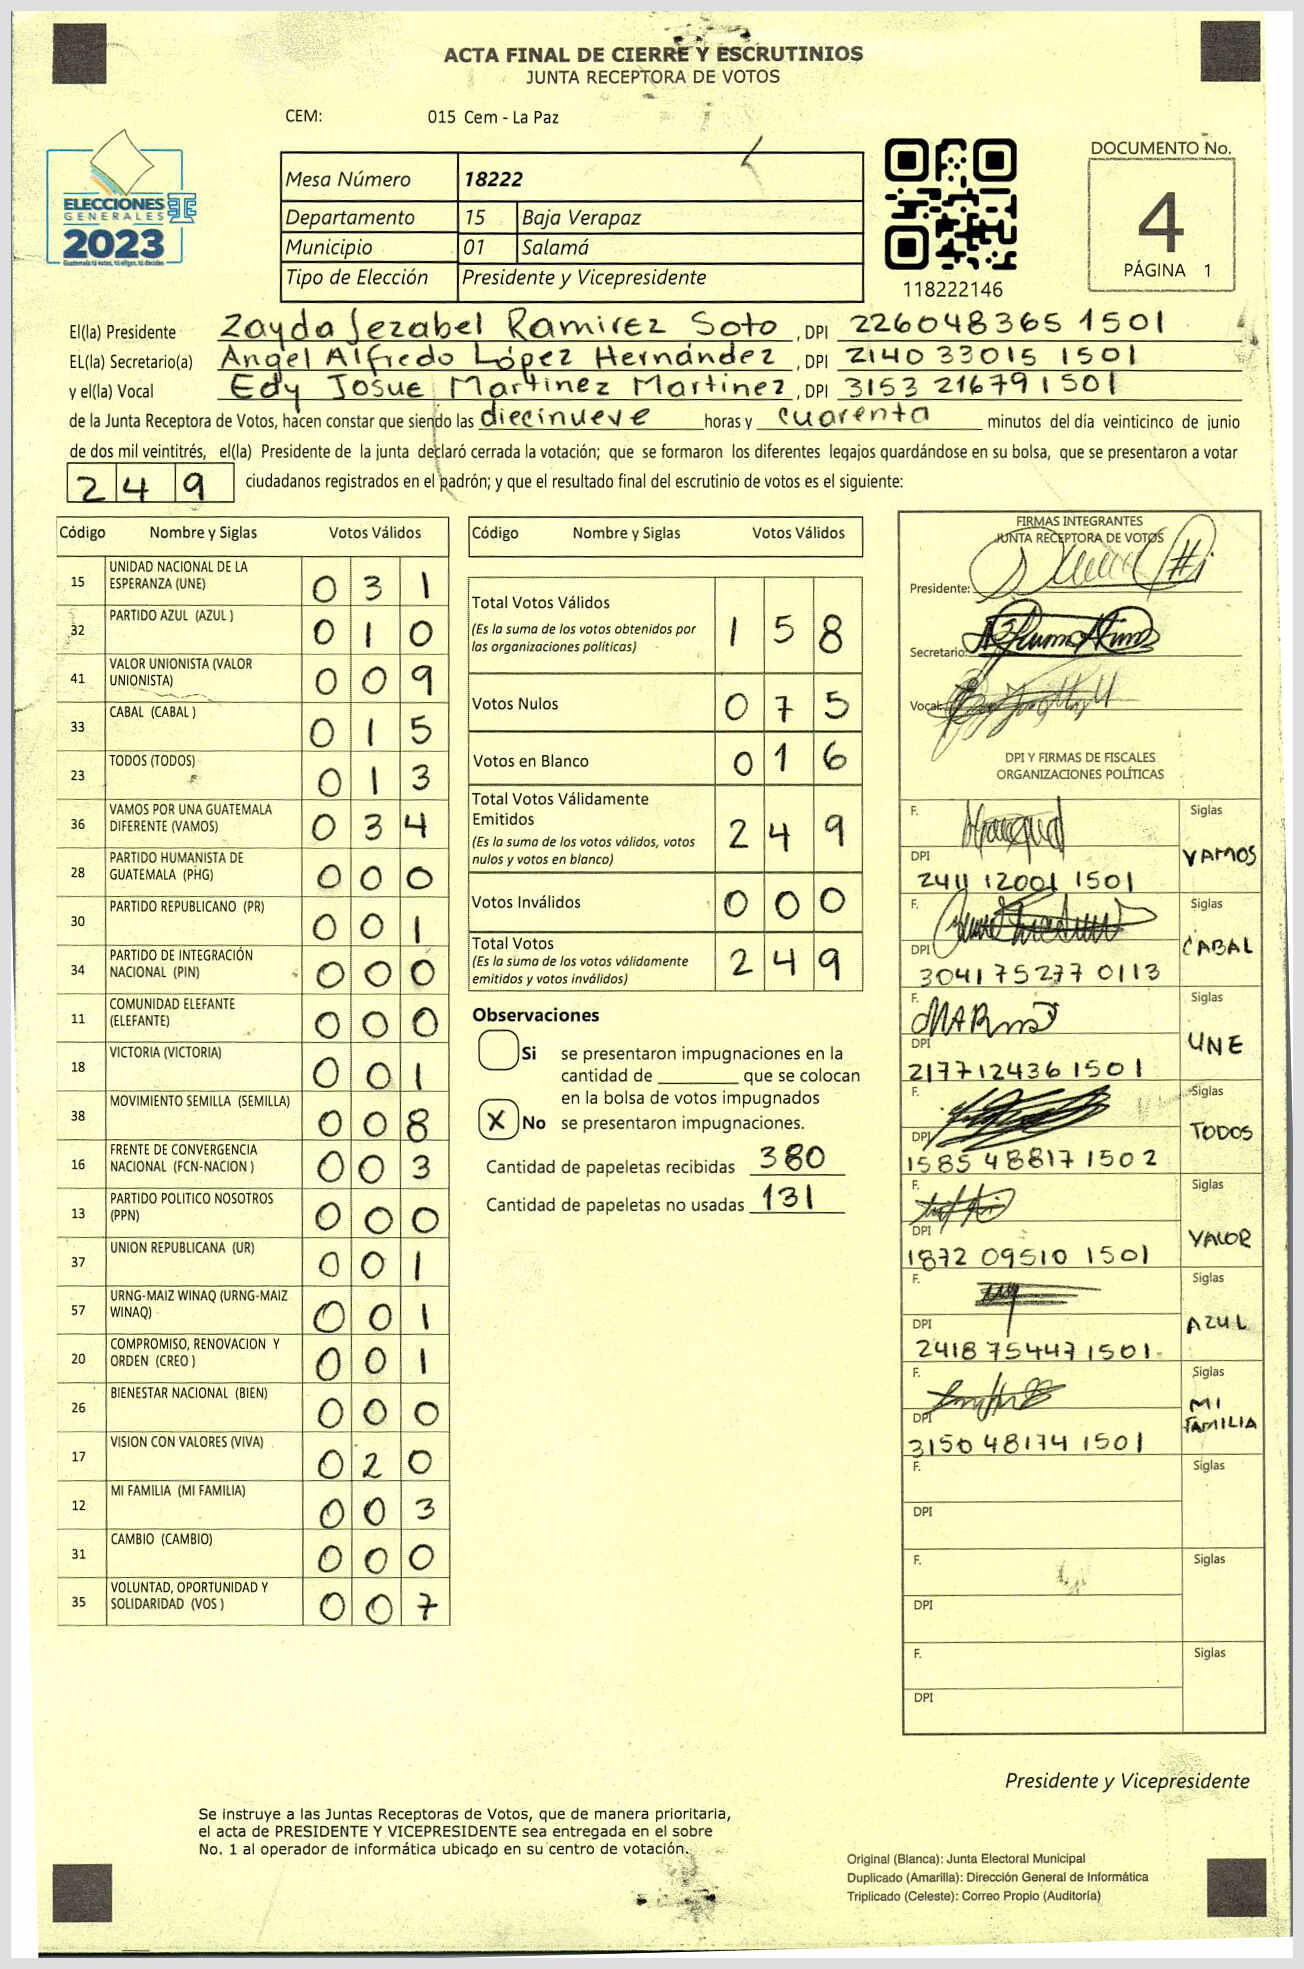 ACTA FINAL DE CIERRE Y ESCRUTINIOS
JUNTA RECEPTORA DE VOTOS
CEM: 015 Cem - La Paz
ELECCIONES
GENERALES
2023
Guatemala: tú votas, tú eliges, tú decides
Mesa Número 18222
Departamento 15 Baja Verapaz
Municipio 01 Salamá
Tipo de Elección Presidente y Vicepresidente
118222146
DOCUMENTO No.
4
PÁGINA 1
El(la) Presidente Zayda Jezabel Ramirez Soto, DPI 226048365 1501
EL(la) Secretario(a) Angel Alfredo López Hernández, DPI 2140 33015 1501
y el(la) Vocal Edy Josue Martinez Martinez, DPI 3153 21679 1501
de la Junta Receptora de Votos, hacen constar que siendo las diecinueve horas y cuarenta minutos del día veinticinco de junio
de dos mil veintitrés, el(la) Presidente de la junta declaró cerrada la votación; que se formaron los diferentes legajos guardándose en su bolsa, que se presentaron a votar
2 4 9 ciudadanos registrados en el padrón; y que el resultado final del escrutinio de votos es el siguiente:
Código Nombre y Siglas Votos Válidos
15 UNIDAD NACIONAL DE LA ESPERANZA (UNE) 0 3 1
32 PARTIDO AZUL (AZUL ) 0 1 0
41 VALOR UNIONISTA (VALOR UNIONISTA) 0 0 9
33 CABAL (CABAL ) 0 1 5
23 TODOS (TODOS) 0 1 3
36 VAMOS POR UNA GUATEMALA DIFERENTE (VAMOS) 0 3 4
28 PARTIDO HUMANISTA DE GUATEMALA (PHG) 0 0 0
30 PARTIDO REPUBLICANO (PR) 0 0 1
34 PARTIDO DE INTEGRACIÓN NACIONAL (PIN) 0 0 0
11 COMUNIDAD ELEFANTE (ELEFANTE) 0 0 0
18 VICTORIA (VICTORIA) 0 0 1
38 MOVIMIENTO SEMILLA (SEMILLA) 0 0 8
16 FRENTE DE CONVERGENCIA NACIONAL (FCN-NACION ) 0 0 3
13 PARTIDO POLITICO NOSOTROS (PPN) 0 0 0
37 UNION REPUBLICANA (UR) 0 0 1
57 URNG-MAIZ WINAQ (URNG-MAIZ WINAQ) 0 0 1
20 COMPROMISO, RENOVACION Y ORDEN (CREO ) 0 0 1
26 BIENESTAR NACIONAL (BIEN) 0 0 0
17 VISION CON VALORES (VIVA) 0 2 0
12 MI FAMILIA (MI FAMILIA) 0 0 3
31 CAMBIO (CAMBIO) 0 0 0
35 VOLUNTAD, OPORTUNIDAD Y SOLIDARIDAD (VOS ) 0 0 7
Código Nombre y Siglas Votos Válidos
Total Votos Válidos 1 5 8
(Es la suma de los votos obtenidos por
las organizaciones políticas)
Votos Nulos 0 7 5
Votos en Blanco 0 1 6
Total Votos Válidamente
Emitidos 2 4 9
(Es la suma de los votos válidos, votos
nulos y votos en blanco)
Votos Inválidos 0 0 0
Total Votos 2 4 9
(Es la suma de los votos válidamente
emitidos y votos inválidos)
Observaciones
Si se presentaron impugnaciones en la
cantidad de ________ que se colocan
en la bolsa de votos impugnados
X No se presentaron impugnaciones.
Cantidad de papeletas recibidas 380
Cantidad de papeletas no usadas 131
FIRMAS INTEGRANTES
JUNTA RECEPTORA DE VOTOS
Presidente:
Secretario:
Vocal:
DPI Y FIRMAS DE FISCALES
ORGANIZACIONES POLÍTICAS
F. Siglas
DPI VAMOS
2411 12001 1501
F. Siglas
DPI CABAL
3041 75277 0113
F. Siglas
DPI UNE
2177124361501
F. Siglas
DPI TODOS
1585 48817 1502
F. Siglas
DPI VALOR
1872 09510 1501
F. Siglas
DPI AZUL
2418 75447 1501
F. Siglas
DPI MI FAMILIA
3150 48174 1501
F. Siglas
DPI
F. Siglas
DPI
F. Siglas
DPI
Presidente y Vicepresidente
Se instruye a las Juntas Receptoras de Votos, que de manera prioritaria,
el acta de PRESIDENTE Y VICEPRESIDENTE sea entregada en el sobre
No. 1 al operador de informática ubicado en su centro de votación.
Original (Blanca): Junta Electoral Municipal
Duplicado (Amarilla): Dirección General de Informática
Triplicado (Celeste): Correo Propio (Auditoría)